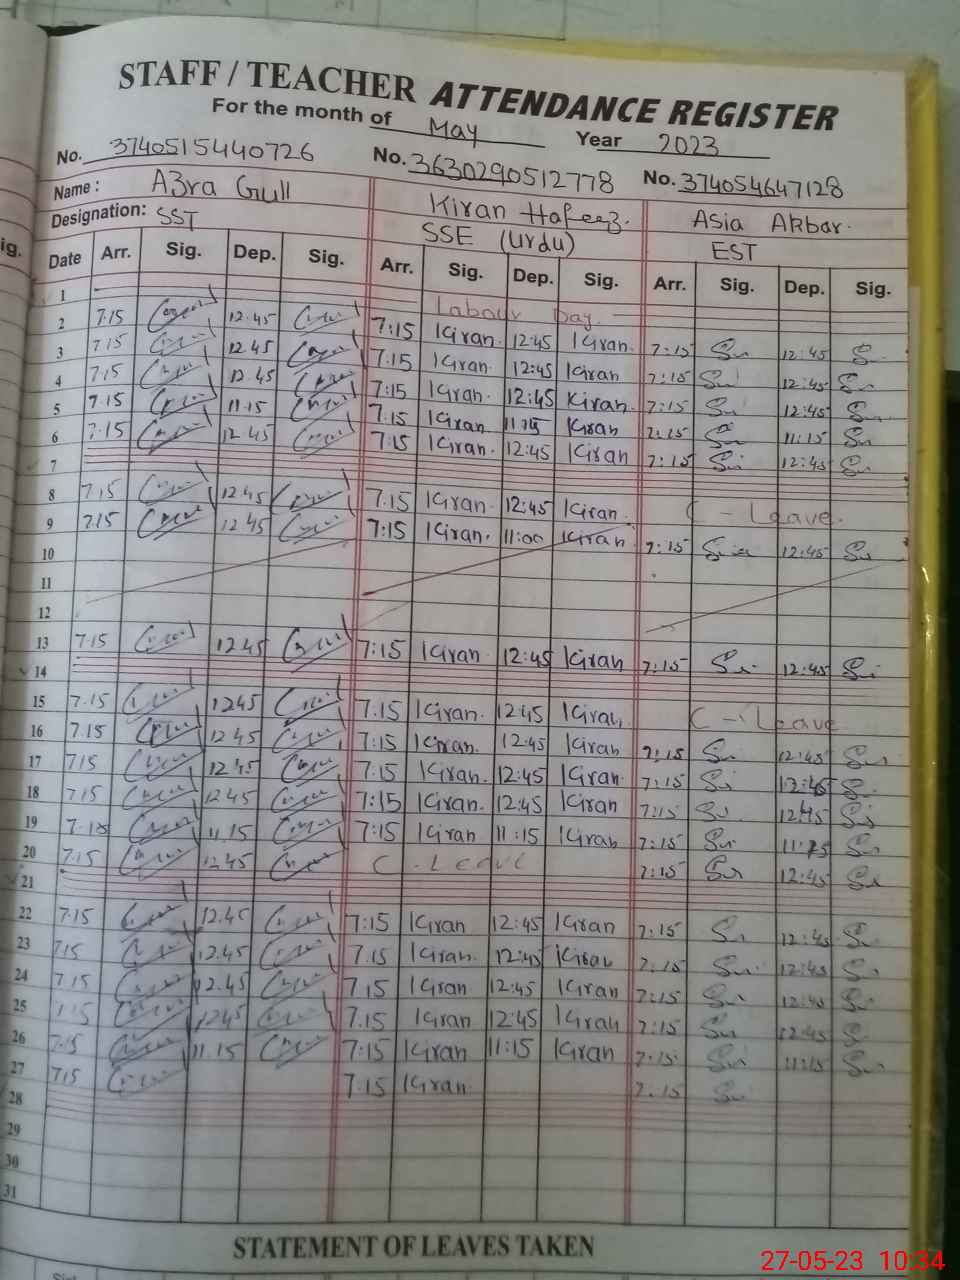 STAFF / TEACHER ATTENDANCE REGISTER
For the month of May Year 2023
No. 3740515440726 No. 3630290512778 No. 374054647128
Name: Azra Gull Kiran Hafeez. Asia Akbar.
Designation: SST SSE (Urdu) EST
ig. Date Arr. Sig. Dep. Sig. Arr. Sig. Dep. Sig. Arr. Sig. Dep. Sig.
1 Labour Day.
2 7.15 12.45 7:15 Kiran. 12:45 Kiran. 7:15 12:45
3 7.15 12.45 7:15 Kiran. 12:45 Kiran 7:15 12:45
4 7.15 12.45 7:15 Kiran. 12:45 Kiran. 7:15 12:45
5 7.15 11.15 7.15 Kiran. 11:15 Kiran 7:15 11:15
6 7.15 12.45 7:15 Kiran. 12:45 Kiran 7:15 12:45
7
8 7.15 12.45 7.15 Kiran. 12:45 Kiran. C - Leave.
9 7.15 12.45 7:15 Kiran. 11:00 Kiran 7:15 12:45
10
11
12
13 7.15 12.45 7:15 Kiran 12:45 Kiran 7:15 12:45
14
15 7.15 12.45 7.15 Kiran. 12:45 Kiran. C - Leave
16 7.15 12.45 7:15 Kiran. 12:45 Kiran 7:15 12:45
17 7.15 12.45 7:15 Kiran. 12:45 Kiran. 7:15 12:45
18 7.15 12.45 7:15 Kiran. 12:45 Kiran 7:15 12:45
19 7.15 11.15 7:15 Kiran 11:15 Kiran 7:15 11:15
20 7.15 12.45 C - Leave 7:15 12:45
21
22 7.15 12.45 7:15 Kiran 12:45 Kiran 7:15 12:45
23 7.15 12.45 7.15 Kiran. 12:45 Kiran 7:15 12:45
24 7.15 12.45 7.15 Kiran 12:45 Kiran 7:15 12:45
25 7.15 12.45 7.15 Kiran 12:45 Kiran 7:15 12:45
26 7.15 11.15 7:15 Kiran 11:15 Kiran 7:15 11:15
27 7.15 7:15 Kiran 7.15
28
29
30
31
STATEMENT OF LEAVES TAKEN
27-05-23 10:34